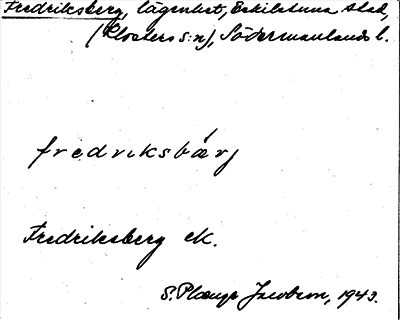 Fredriksberg, lägenhet, Eskilstuna stad,
(Klosters s:n), Södermanlands l.
fredriksbärj
Fredriksberg ek.
S. Jacobson, 1943.